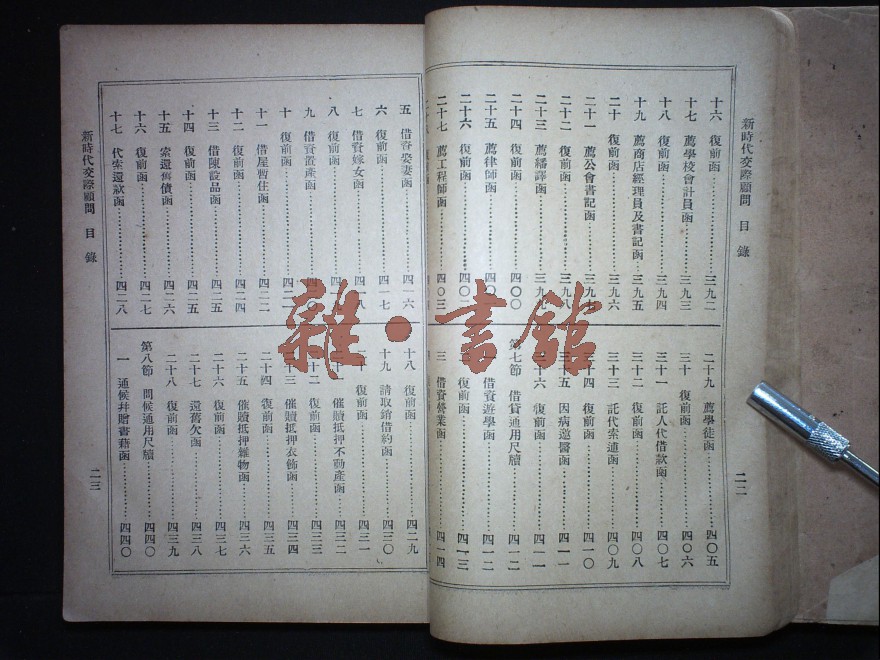 新時代交際顧問 目錄
十六 復前函 三九二
十七 薦學校會計員函 三九三
十八 復前函 三九四
十九 薦商店經理員及書記函 三九五
二十 復前函 三九六
二十一 薦公會書記函
二十二 復前函 三九八
二十三 薦繙譯函
二十四 復前函 四〇〇
二十五 薦律師函
二十六 復前函
二十七 薦工程師函 四〇三
二十九 薦學徒函 四〇五
三十 復前函 四〇六
三十一 託人代借款函 四〇七
三十二 復前函 四〇八
三十三 託代索逋函 四〇九
三十四 復前函 四一〇
三十五 因病邀醫函 四一一
三十六 復前函 四一一
第七節 借貸通用尺牘 四一二
一 借資遊學函 四一二
二 復前函 四一三
三 借資營業函 四一四
二二
五 借資娶妻函 四一六
六 復前函 四一七
七 借資嫁女函
八 復前函
九 借資置產函
十 復前函
十一 借屋暫住函 四二二
十二 復前函 四二四
十三 借陳設品函 四二五
十四 復前函 四二五
十五 索還舊債函 四二六
十六 復前函 四二七
十七 代索還款函 四二八
新時代交際顧問 目錄
十八 復前函 四二九
十九 請取銷借約函 四三〇
二十 復前函 四三一
二十一 催贖抵押不動產函 四三二
二十二 復前函 四三三
二十三 催贖抵押衣飾函 四三四
二十四 復前函 四三五
二十五 催贖抵押雜物函 四三六
二十六 復前函 四三七
二十七 還舊欠函 四三八
二十八 復前函 四三九
第八節 問候通用尺牘 四四〇
一 通候并贈書籍函 四四〇
二三
雜·書館